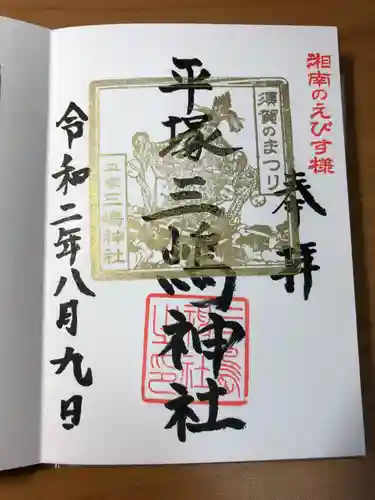 湘南のえびす様
奉拝
須賀のまつり
平塚三嶋神社
平塚三嶋神社
令和二年八月九日